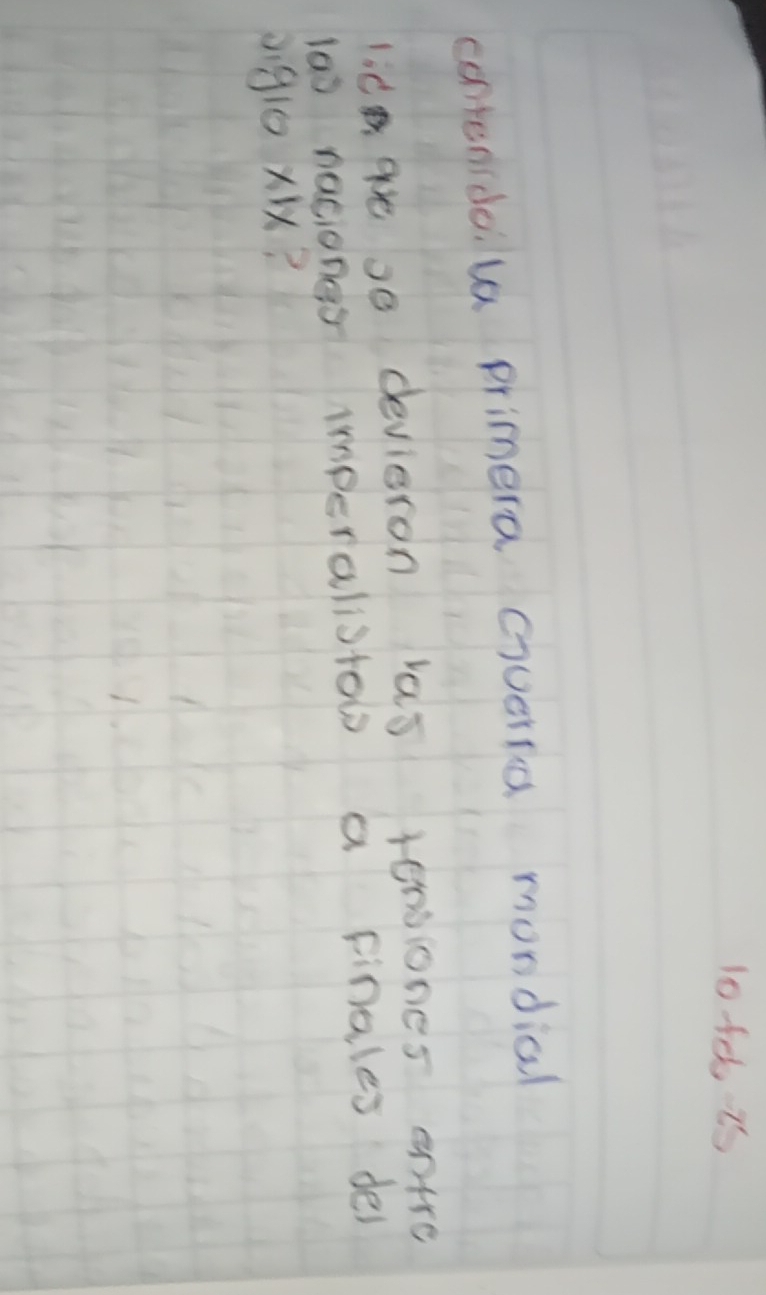 10 feb 25
contenido: la primera Guerra mondial
1: ¿a que se devieron las tensiones entre
las naciones imperalistas a finales del
siglo XIX?